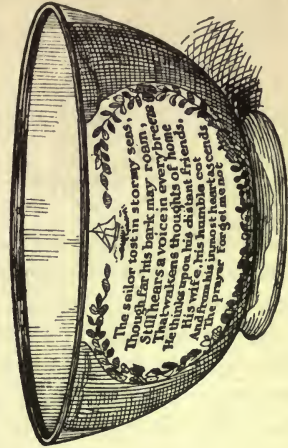 The sailor tost in stormy seas,
Though far his bark may roam,
Still hears a voice in every breeze
That wakens thoughts of home
He thinks upon his distant friends,
His wife, his humble cot
And from his inmost heart ascends
The prayer forget me not